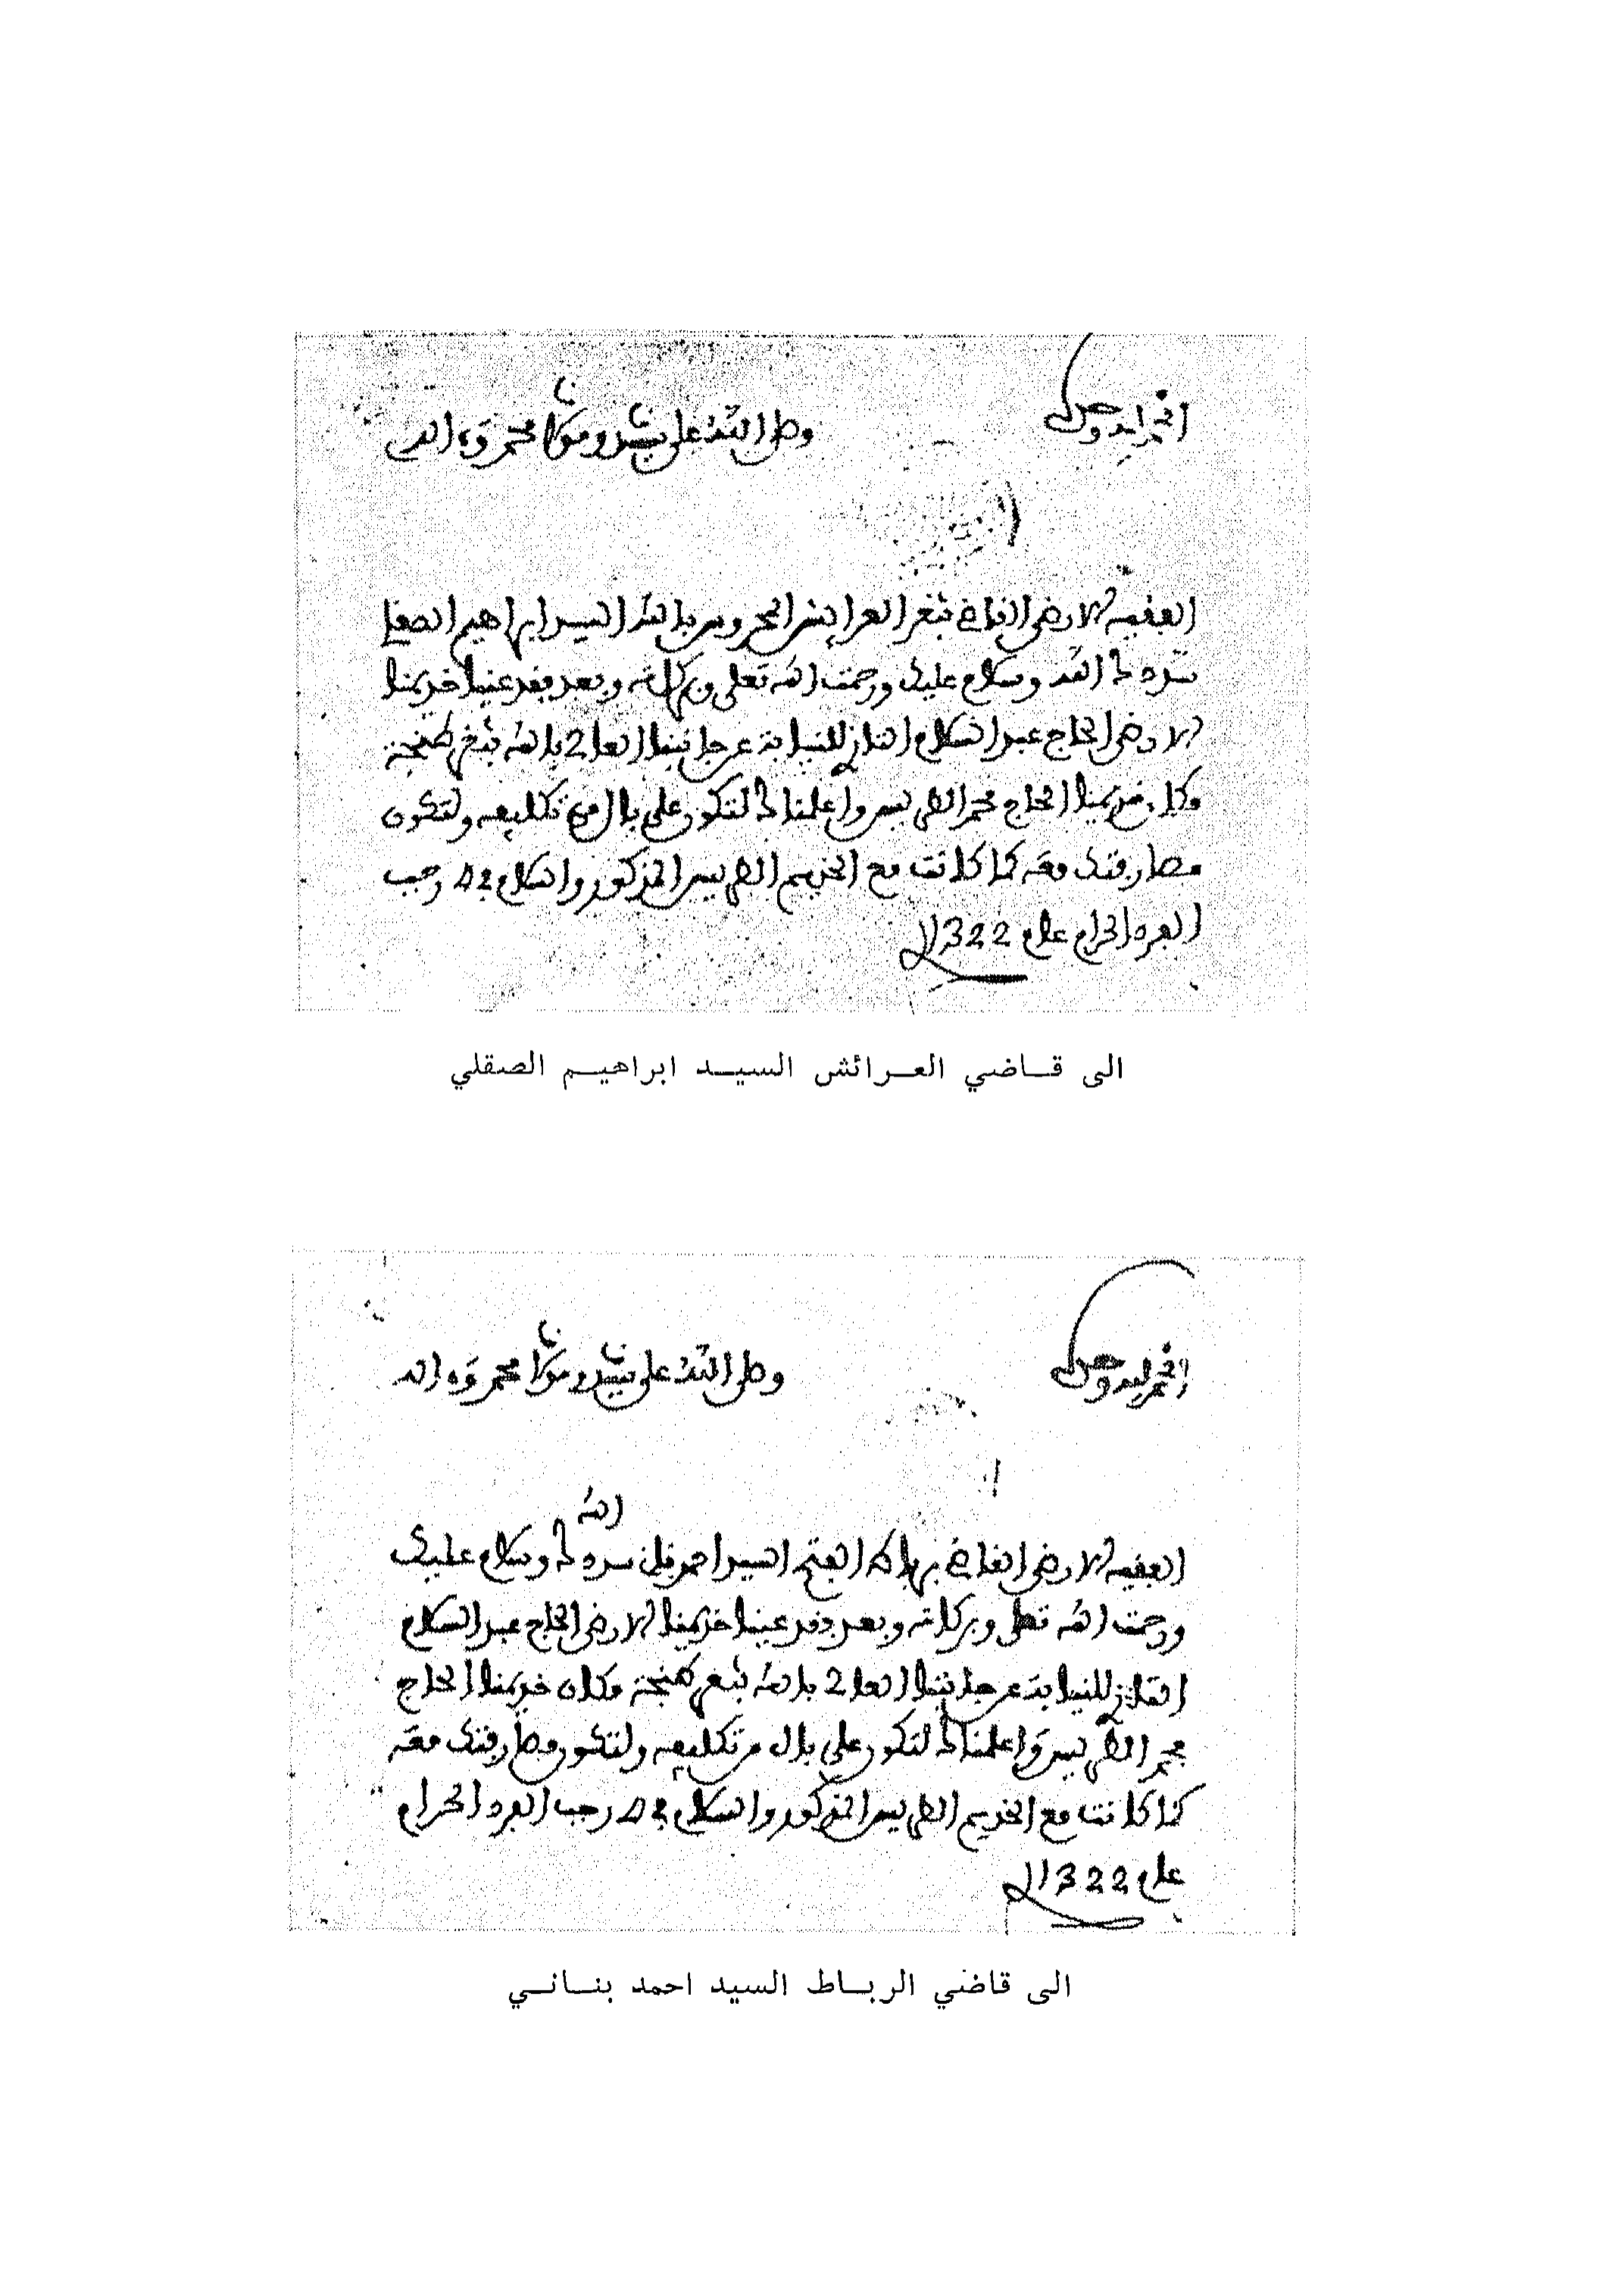 الحمد لله وحده
وصلى الله على سيدنا ومولانا محمد وءاله
الفقيه الارضى القاضي بثغر العرايش المحروس بالله السيد ابراهيم الصقلي
سددك الله وسلام عليك ورحمت الله تعلى وبركاته وبعد فقد عينا خديمنا
الارضى الحاج عبد السلام التازي للنيابة عن جانبنا العالي بالله بثغر طنجة
وكان خديمنا الحاج محمد الطريس واعلمناك لتكون على بال من تكليفه ولتكون
مصارفتك معه كما كانت مع الخديم الطريس المذكور والسلام في رجب
الفرد الحرام عام 1322
الى قاضي العرائش السيد ابراهيم الصقلي
الحمد لله وحده
وصلى الله على سيدنا ومولانا محمد وءاله
الفقيه الارضى القاضي برباط الفتح السيد احمد بناني سددك الله وسلام عليك
ورحمت الله تعلى وبركاته وبعد فقد عينا خديمنا الارضى الحاج عبد السلام
التازي للنيابة عن جانبنا العالي بالله بثغر طنجة مكان خديمنا الحاج
محمد الطريس واعلمناك لتكون على بال من تكليفه ولتكون مصارفتك معه
كما كانت مع الخديم الطريس المذكور والسلام في رجب الفرد الحرام
عام 1322
الى قاضي الرباط السيد احمد بناني